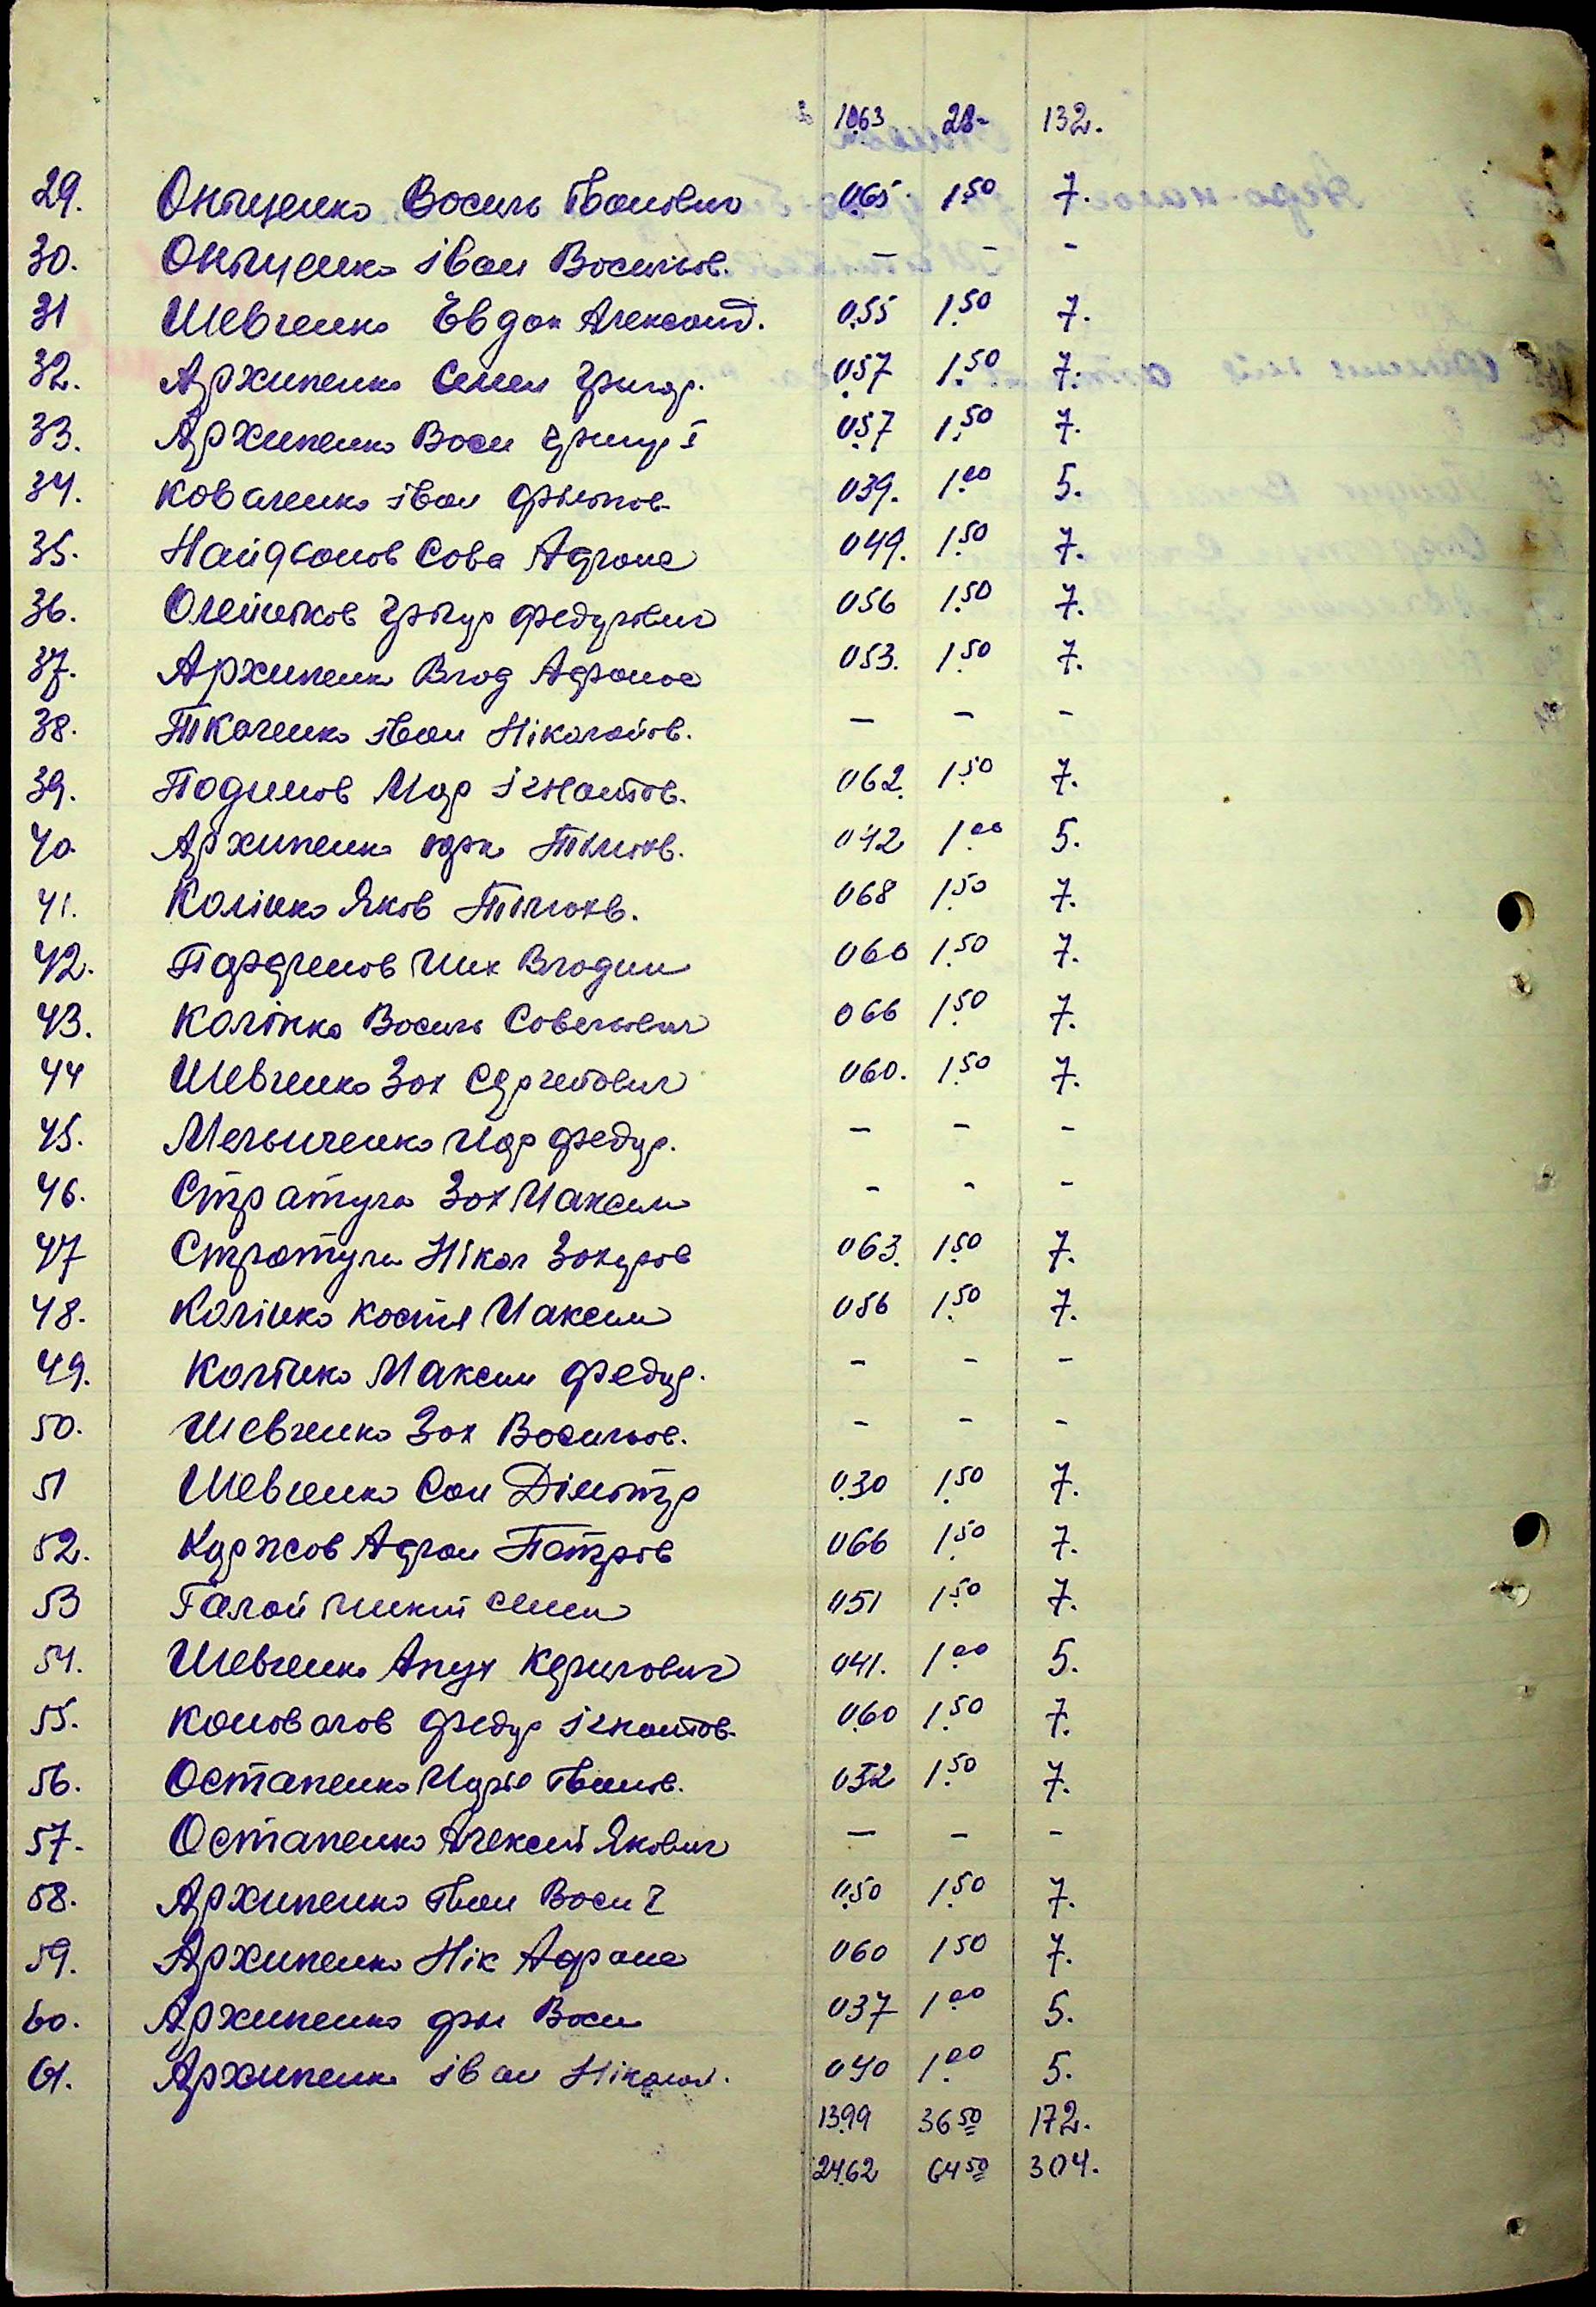 1063 28- 132.
29. Онъщенко Восиль Іванович 0,65 1.50 7.
30. Онъщенко іван Восильов. - - -
31 Шевченко Евдок Александ. 0.55 1.50 7.
32. Архипенко Семен Григор. 0.57 1.50 7.
33. Архипенко Воси Григор I 0.57 1.50 7.
34. Коваленко іван 039. 1.00 5.
35. Найдьонов Сова Афрона 049. 1.50 7.
36. Олейніков Грігур Федурович 056 1.50 7.
37. Архипенко Влод Афонос 053. 1.50 7.
38. Ткаченко іван Ніколайов. - - -
39. Подимов Мар ігнатов. 062. 1.50 7.
40 Архипенко Тімохв. 042 1.00 5.
41. Колінко Яков Тімохв. 068 1.50 7.
42. Парфенов Мих Влодим 060 1.50 7.
43. Колінко Восиль Совельович 066 1.50 7.
44 Шевченко Зох Сергейович 060. 1.50 7.
45. Мельниченко Мар Федур. - - -
46. Стратула Зох Максим - - -
47 Стратула Нікол Зохуров 063. 1.50 7.
48. Колінко Костя Максим 056 1.50 7.
49. Колінко Максим Федур. - - -
50. Шевченко Зох Восильов. - - -
51 Шевченко Сом Дімітур 0.30 1.50 7.
52. Куржсов Афон Петров 066 1.50 7.
53 Галай Микит Семен 051 1.50 7.
54. Шевченко Керилович 041. 1.00 5.
55. Коновалов Федур ігнатов. 060 1.50 7.
56. Остапенко Іванов. 052 1.50 7.
57. Остапенко Алексей Якович - - -
58. Архипенко Іван Воси 2 0.50 1.50 7.
59. Архипенко Нік Афоне 060 1 50 7.
60. Архипенко Воси 037 1.00 5.
61. Архипенко іван Нікол. 040 1.00 5.
13.99 36 50 172.
24.62 64 50 304.